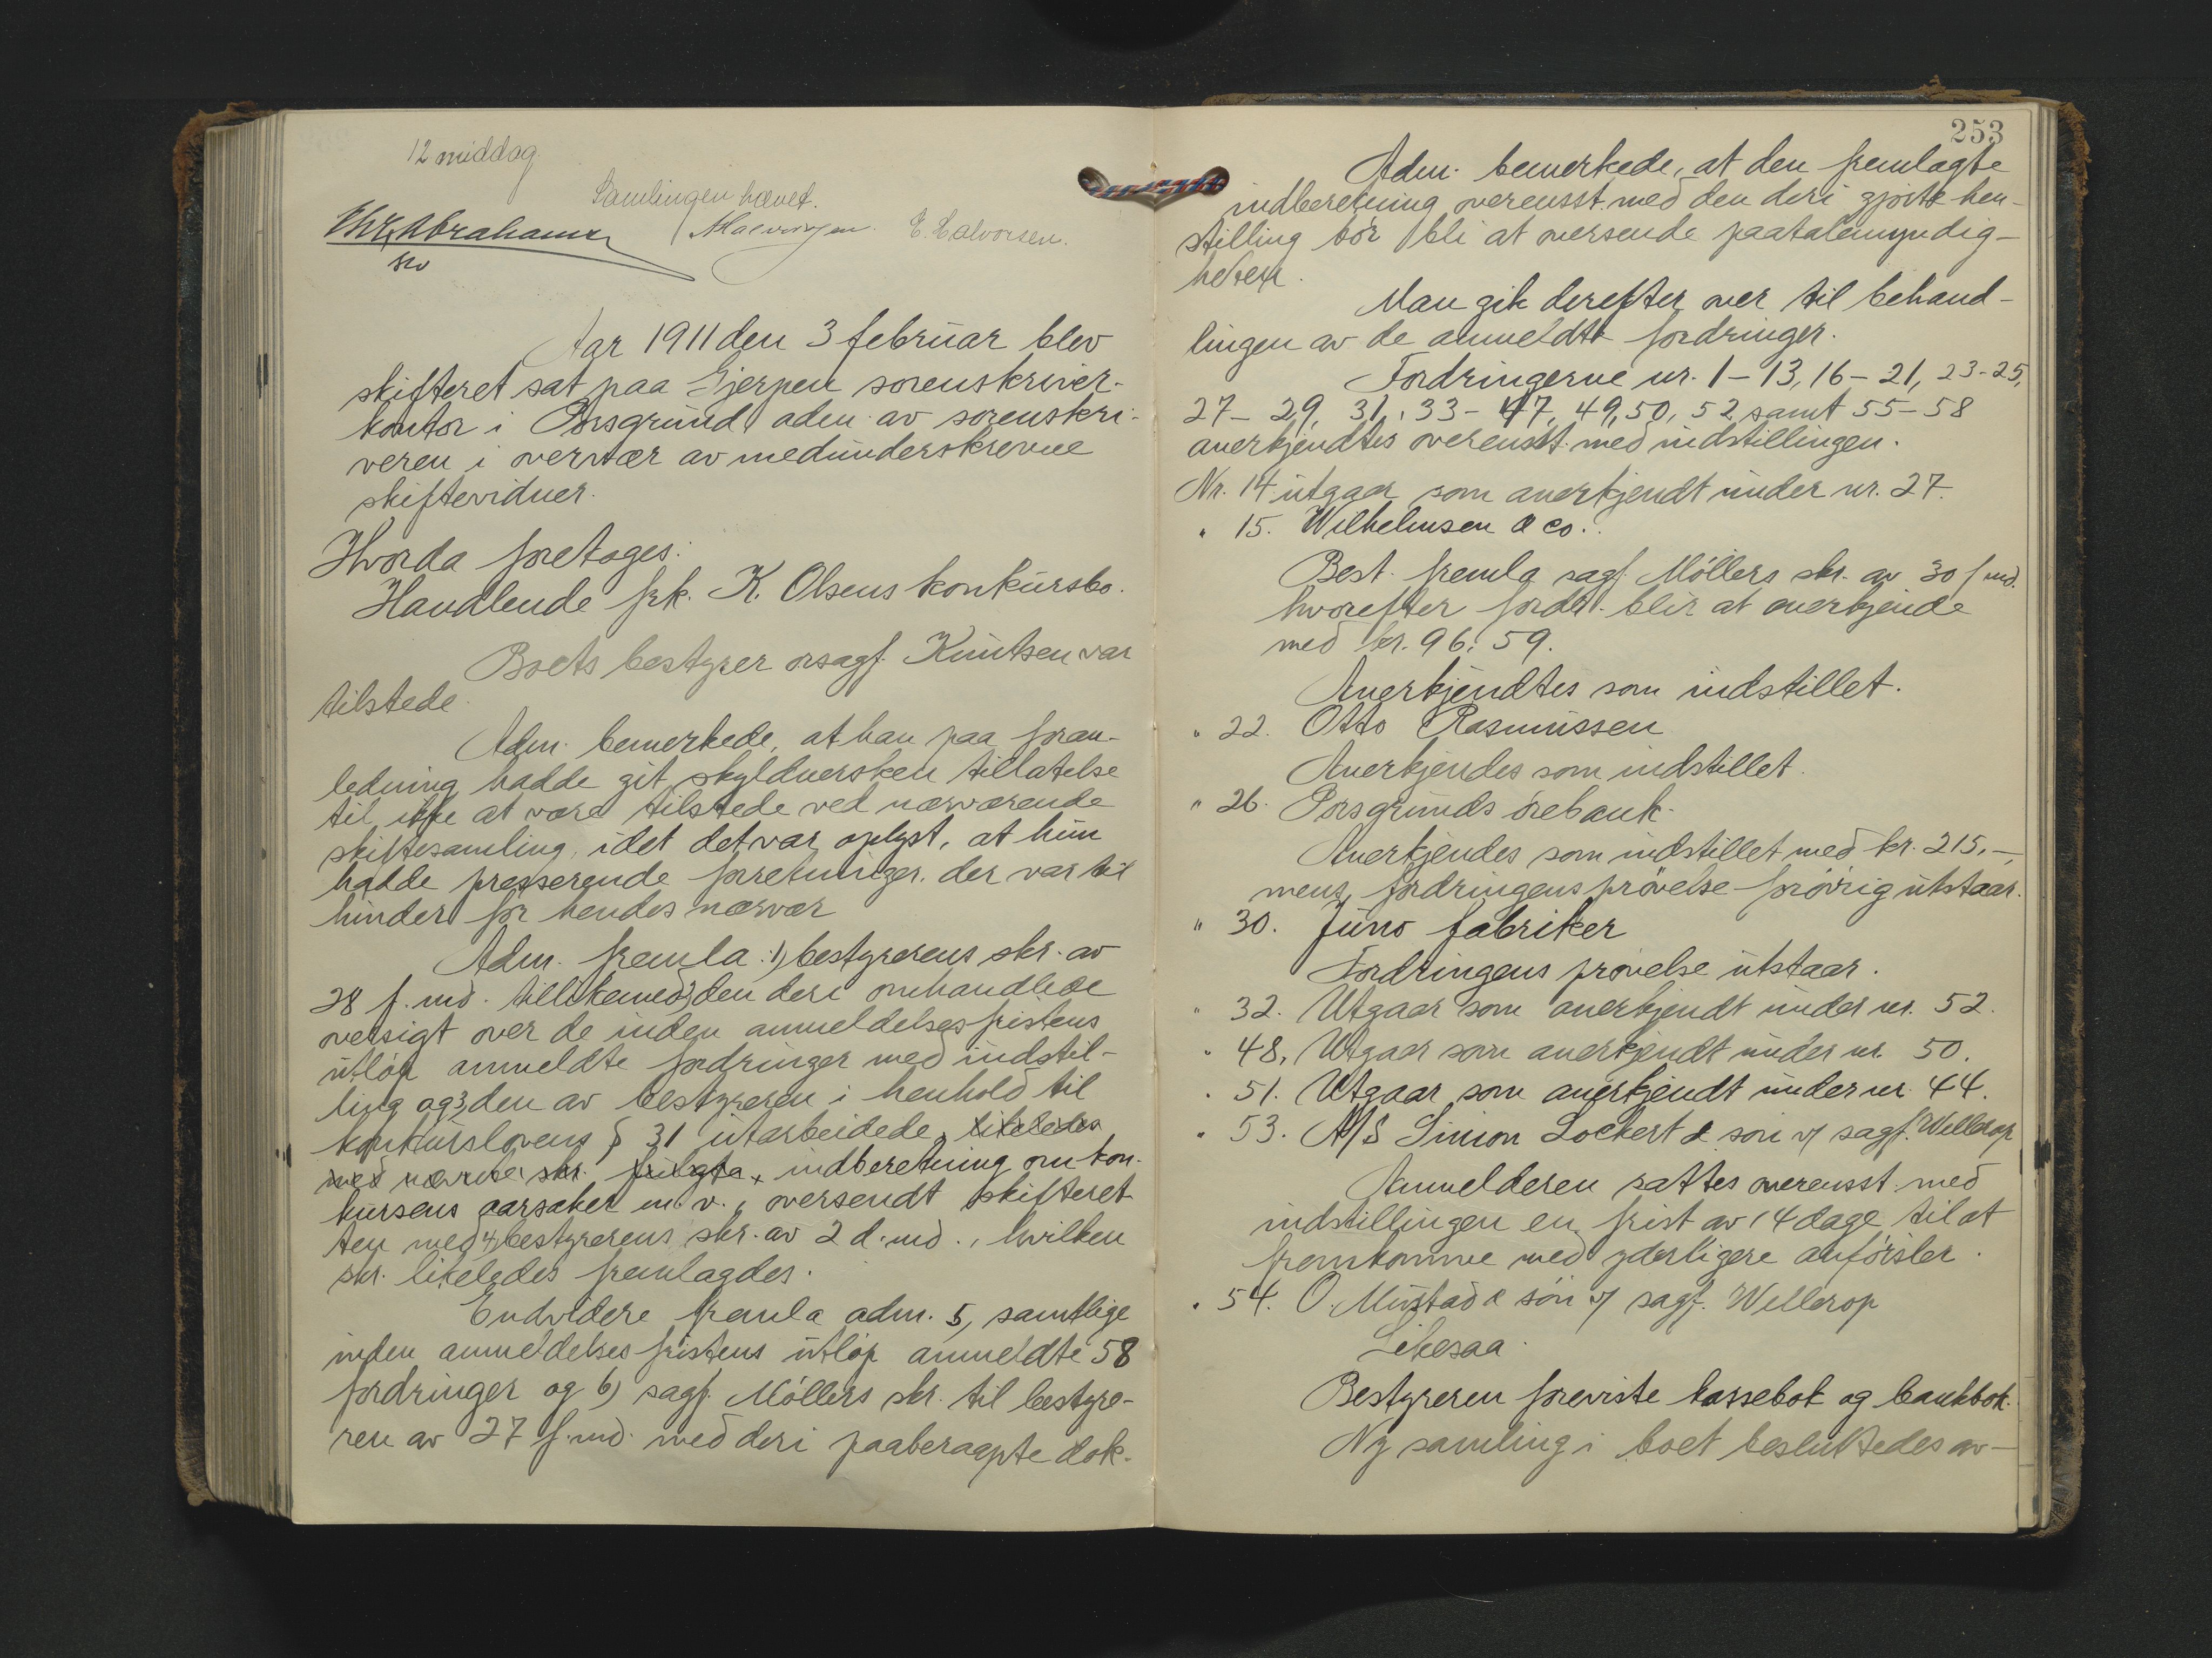 12 middag
Samlingen hævet.
E. Halvorsen.
Aar 1911 den 3 februar blev
skifteret sat paa Gjerpen sorenskriver-
kontor i Porsgrund adm. av sorenskri-
veren i overvær av medunderskrevne
skiftevidner.
Hvorda foretoges:
Handlende frk. K. Olsens konkursbo.
Boets bestyrer orsagf. Knutsen var
tilstede.
Adm. bemerkede, at han paa foran-
ledning hadde git skyldnersken tillatelse
til ikke at være tilstede ved nærværende
skiftesamling, idet det var oplyst, at hun
hadde presserende forretninger, der var til
hinder for hendes nærvær
Adm. fremla: 1) bestyrerens skr. av
28 f. md. tillikemed 2) den deri omhandlede
oversigt over de inden anmeldelsesfristens
utløp anmeldte fordringer med indstil-
ling og 3) den av bestyreren i henhold til
konkurslovens § 31 utarbeidede, likeledes
med nævnte skr. indberetning om kon-
kursens aarsaker m. v., oversendt skifteret-
ten med 4) bestyrerens skr. av 2 d. md., hvilken
skr. likeledes fremlagdes.
Endvidere fremla adm. 5, samtlige
inden anmeldelsesfristens utløp anmeldte 58
fordringer og 6) sagf. Möllers skr. til bestyre-
ren av 27 f. md. med deri paaberaapte dok.
253
Adm. bemerkede, at den fremlagte
indberetning overensst. med den deri gjorte hen-
stilling bør bli at oversende paatalemyndig-
heten.
Man gik derefter over til behand-
lingen av de anmeldte fordringer.
Fordringerne nr. 1-13, 16-21, 23-25,
27-29, 31, 33-47, 49, 50, 52 samt 55-58
anerkjendtes overensst. med indstillingen.
Nr. 14 utgaar som anerkjendt under nr. 27.
" 15. Wilhelmsen & co.
Best. fremla sagf. Möllers skr. av 30 f. md.
hvorefter fordr. blir at anerkjende
med kr. 96.59.
Anerkjendtes som indstillet.
" 22. Otto Rasmussen
Anerkjendes som indstillet.
" 26. Porsgrunds örebank.
Anerkjendes som indstillet med kr. 215.-,
mens fordringens prövelse forövrig utstaar.
" 30. Juno fabriker
Fordringens prövelse utstaar.
" 32. Utgaar som anerkjendt under nr. 52.
" 48. Utgaar som anerkjendt under nr. 50.
" 51. Utgaar som anerkjendt under nr. 44.
" 53. A/S Simon Lockert & sön v/ sagf. Wellerop
Anmelderen sattes overensst. med
indstillingen en frist av 14 dage til at
fremkomme med yderligere anförsler.
" 54. O. Mustad & sön v/ sagf. Wellerop
Likesaa.
Bestyreren foreviste kassebok og bankbok.
Ny samling i boet besluttedes av-